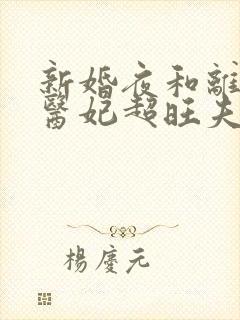 新婚夜和離
醫妃超旺夫
楊慶元